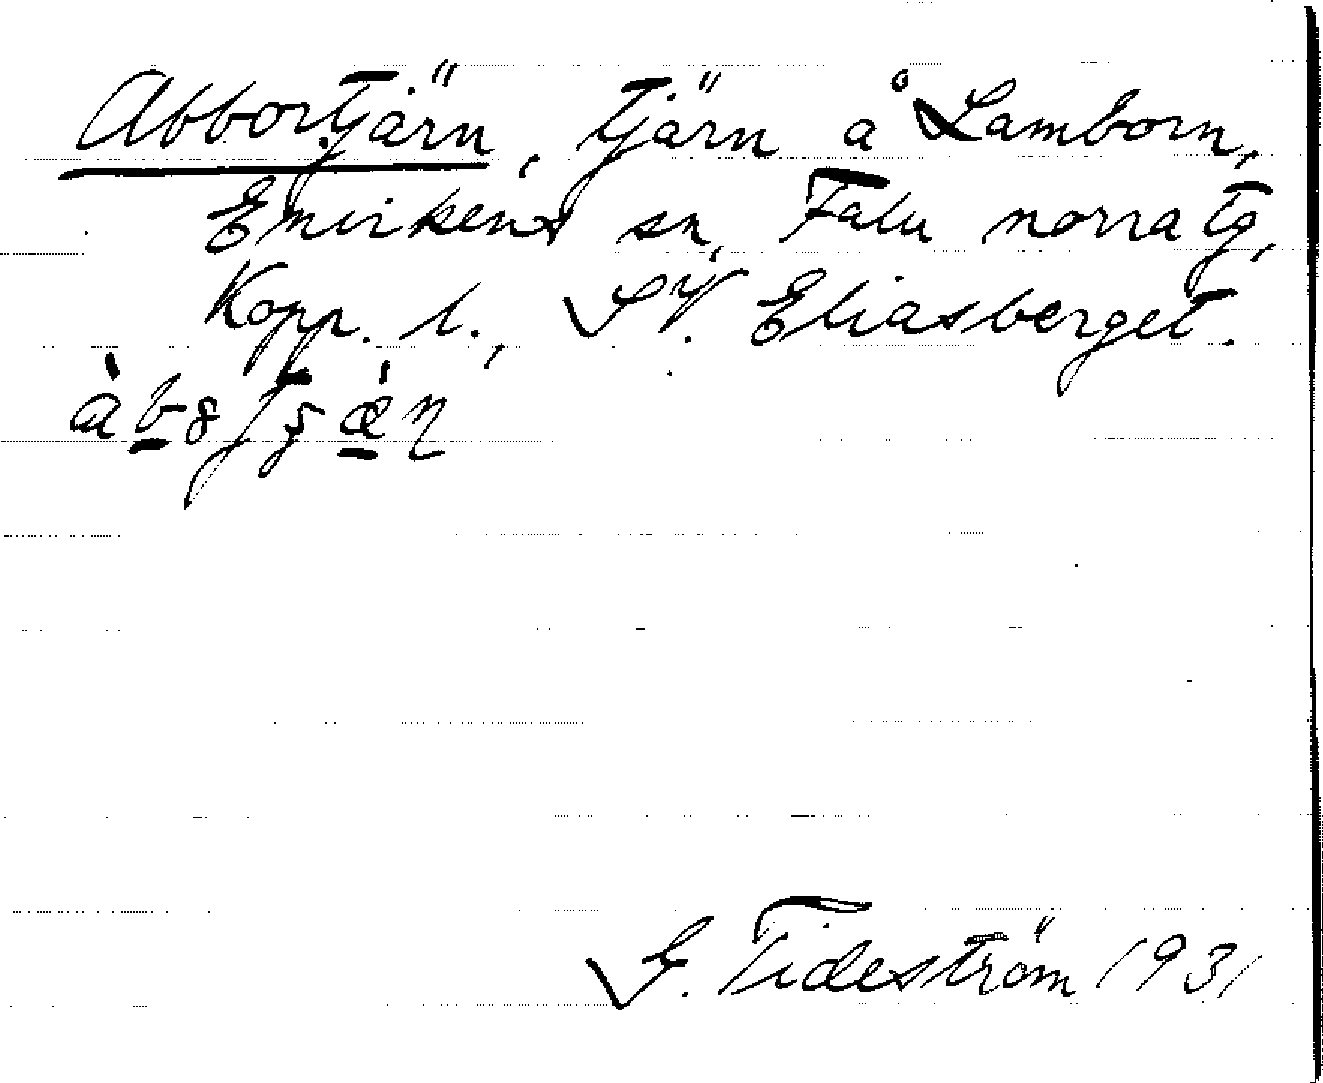 Abbortjärn, tjärn å Lamborn,
Envikens sn, Falu norra tg,
Kopp. l., SV. Eliasberget.
G. Tideström 1931